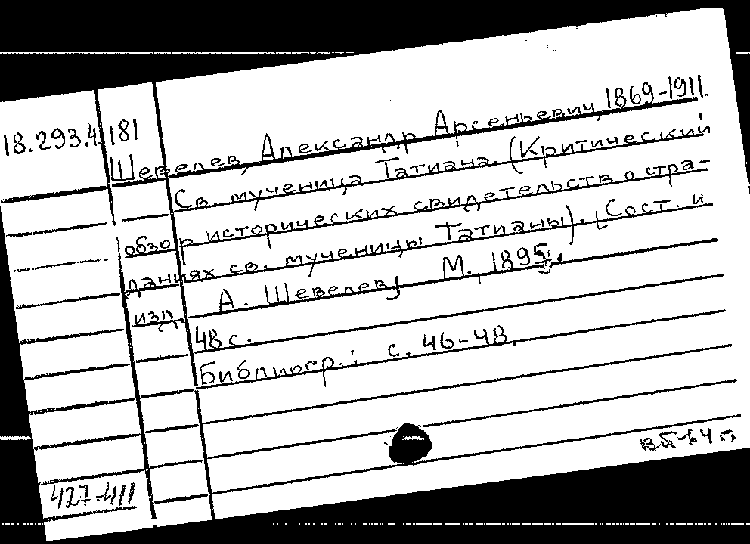 18.293.4.181
Шевелев, Александр Арсеньевич, 1869-1911.
Св. мученица Татиана. (Критический
обзор исторических свидетельств о стра-
даниях св. мученицы Татианы). [Сост. и
изд. А. Шевелев] М., 1895.
48 с.
Библиогр.: с. 46-48.
427-411